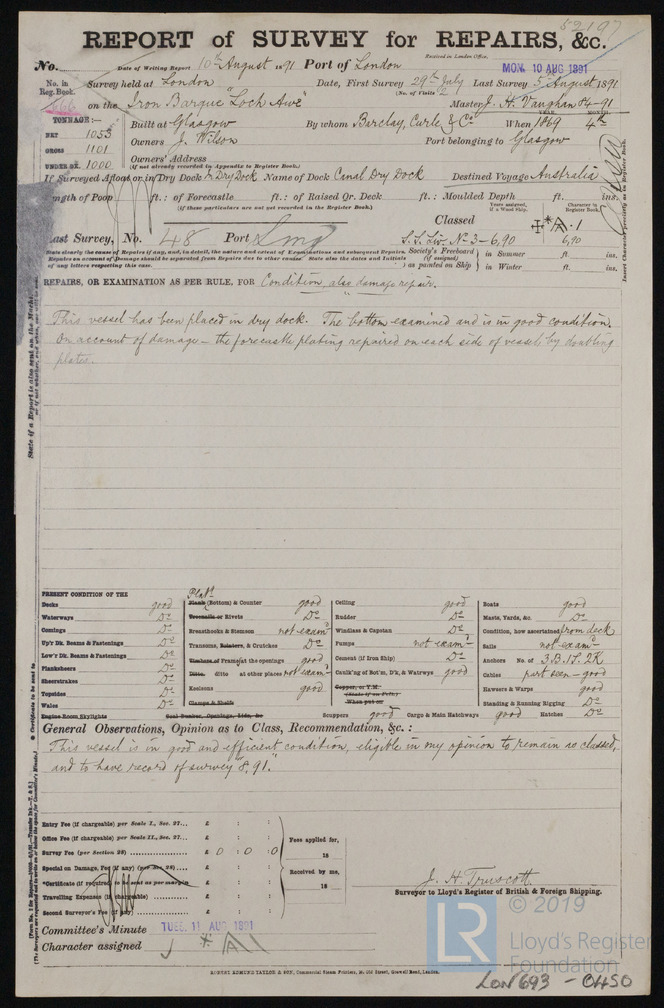 52197
REPORT of SURVEY for REPAIRS, &c.
Received in London Office,
No. Date of Writing Report 10th August 1891 Port of London MON. 10 AUG 1891
No. in Reg. Book. Survey held at London Date, First Survey 29th July Last Survey 5th August 1891
(No. of Visits 2)
on the Iron Barque "Loch Awe" Master J. H. Vaughan 84-91
TONNAGE:— Built at Glasgow By whom Barclay, Curle & Co When 1869 4th
YEAR. MONTH.
NET 1053
GROSS 1101 Owners J. Wilson Port belonging to Glasgow
UNDER DK. 1000 Owners' Address
(If not already recorded in Appendix to Register Book.)
If Surveyed Afloat or in Dry Dock Dry Dock Name of Dock Canal Dry Dock Destined Voyage Australia
Length of Poop ft.: of Forecastle ft.: of Raised Qr. Deck ft.: Moulded Depth ft. ins.
(If these particulars are not yet recorded in the Register Book.)
Years assigned, if a Wood Ship. Character in Register Book.
Classed A.1
Last Survey, No. 48 Port Lon S.S. Liv. No 3-6,90 6,90
State clearly the cause of Repairs if any, and, in detail, the nature and extent of Examinations and subsequent Repairs. Society's Freeboard (if assigned) as painted on Ship in Summer ft. ins.
Repairs on account of Damage should be separated from Repairs due to other causes. State also the dates and Initials of any letters respecting this case. in Winter ft. ins.
REPAIRS, OR EXAMINATION AS PER RULE, FOR Condition, also damage repair.
This vessel has been placed in dry dock. The bottom examined and is in good condition.
On account of damage – the forecastle plating repaired on each side of vessel by doubling
plates.
PRESENT CONDITION OF THE
Decks good
Waterways Do
Comings Do
Up'r Dk. Beams & Fastenings Do
Low'r Dk. Beams & Fastenings Do
Planksheers Do
Sheerstrakes Do
Topsides Do
Wales Do
Engine Room Skylights
Platg
Plank (Bottom) & Counter good
Treenails or Rivets Do
Breasthooks & Stemson not examd
Transoms, Pointers, & Crutches Do
Timbers of Frames at the openings good
Ditto ditto at other places not examd
Keelsons good
Clamps & Shelfs
Coal Bunker, Openings, Lids, &c
Ceiling good
Rudder Do
Windlass & Capstan Do
Pumps not examd
Cement (if Iron Ship) Do
Caulk'g of Bot'm, D'k, & Watrwys good
Copper, or Y.M.
(State if on Felt.)
When put on
Scuppers good Cargo & Main Hatchways good Hatches Do
Boats good
Masts, Yards, &c. Do
Condition, how ascertained from deck
Sails not examd
Anchors No. of 3.B. 1S. 2K
Cables part seen – good
Hawsers & Warps good
Standing & Running Rigging Do
General Observations, Opinion as to Class, Recommendation, &c.:
This vessel is in good and efficient condition, eligible in my opinion to remain as classed,
and to have record of survey "8,91."
Entry Fee (if chargeable) per Scale I., Sec. 27... £ : :
Office Fee (if chargeable) per Scale II., Sec. 27... £ : :
Survey Fee (per Section 28) £ 0 : 0 : 0
Special on Damage, Fee (if any) (per Sec. 28) £ : :
*Certificate (if required) to be sent as per margin £ : :
Travelling Expenses (if chargeable) £ : :
Second Surveyor's Fee (if any) £ : :
Fees applied for,
18
Received by me,
18
J. H. Truscott
Surveyor to Lloyd's Register of British & Foreign Shipping.
Committee's Minute TUES. 11 AUG 1891
Character assigned
© 2019
LR
Lloyd's Register
Foundation
LON693-0450